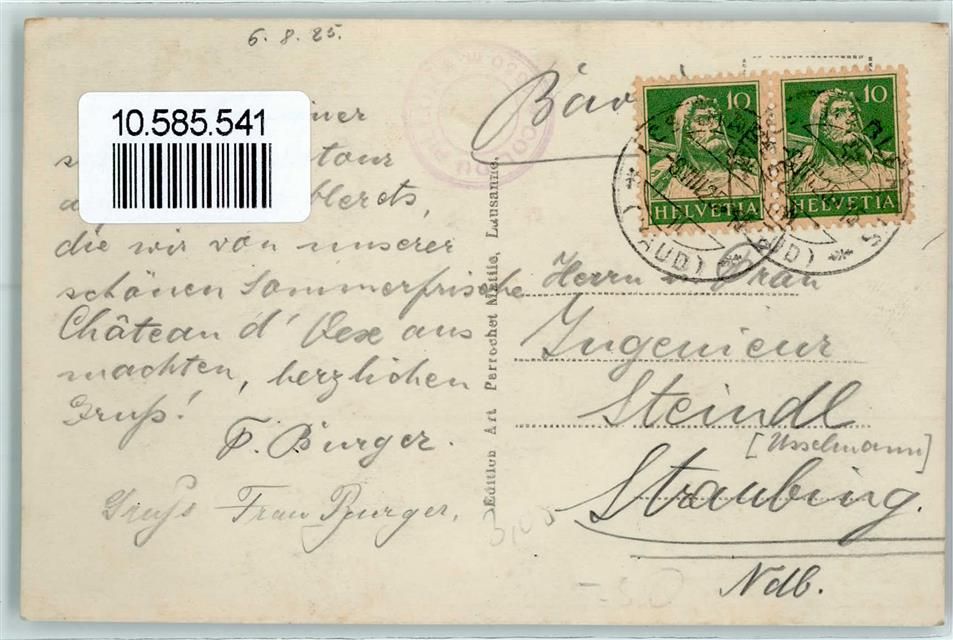 6.8.25.
10.585.541
tour
die wir von unserer
schönen Sommerfrische
Château d'Oex aus
machten, herzlichen
Gruß!
F. Burger.
Gruß Frau Burger.
Edition Art Perrochet Matile, Lausanne.
10
HELVETIA
10
HELVETIA
Herrn u. Frau
Ingenieur
Steindl
[Usselmann]
Straubing.
Ndb.